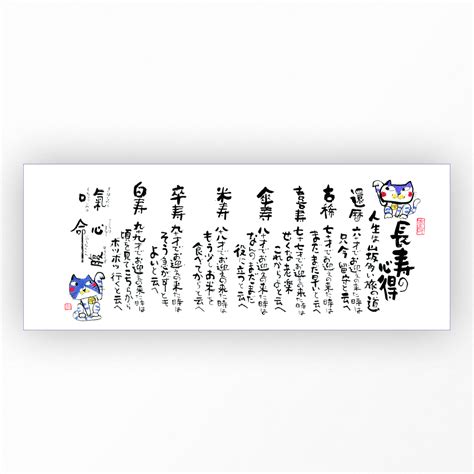 長寿の心得
人生は山坂多い旅の道
還暦
六十才でお迎えの来た時は
只今留守と云へ
古稀
七十才でお迎えの来た時は
まだまだ早いと云へ
喜寿
七十七才でお迎えの来た時は
せくな老楽
これからよと云へ
傘寿
八十才でお迎えの来た時は
なんのまだまだ
役に立つと云へ
米寿
八十八才でお迎えの来た時は
もう少しお米を
食べてからと云へ
卒寿
九十才でお迎えの来た時は
そう急がずとも
よいと云へ
白寿
九十九才でお迎えの来た時は
頃を見てこちらから
ボツボツ行くと云へ
氣心
命